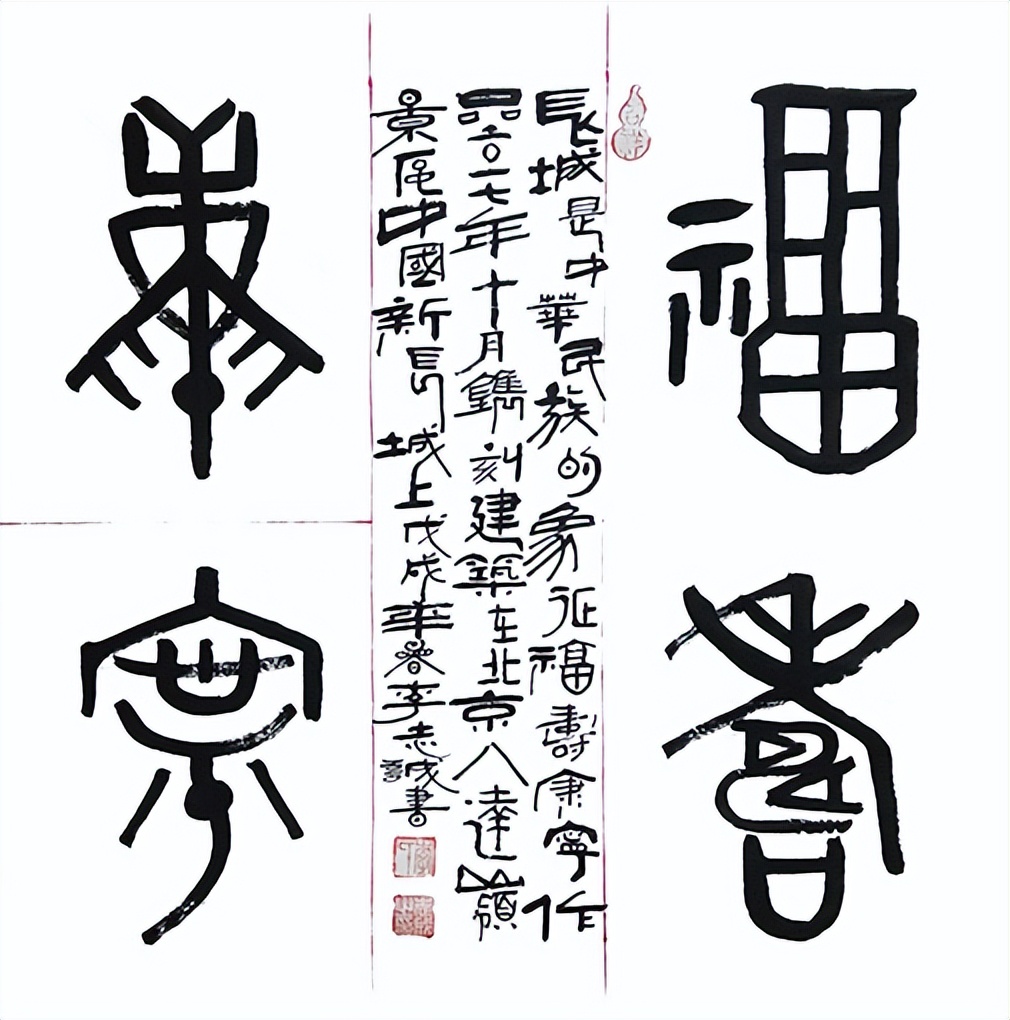 福壽
康寧
長城是中華民族的象征福壽康寧作
品二〇一七年十月鐫刻建築在北京八達嶺
景區中國新長城上戊戌年春李志誠書